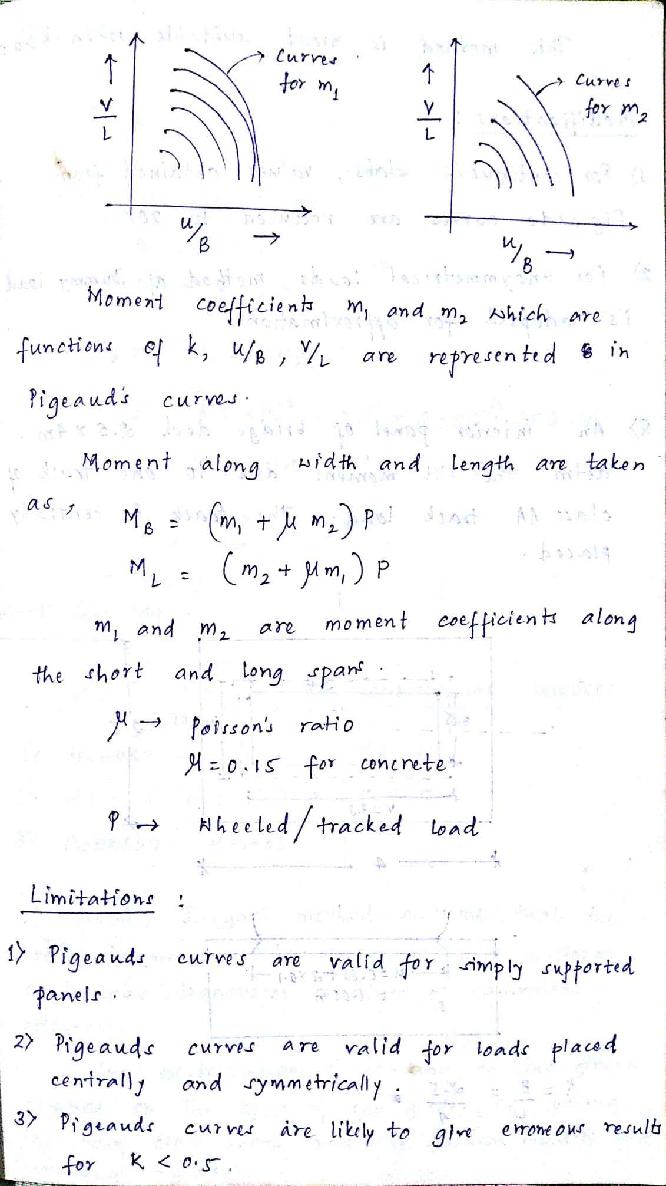 Curves
for m₁
↑
V/L
u/B →
Curves
for m₂
↑
V/L
u/B →
Moment coefficients m₁ and m₂ which are
functions of k, u/B, V/L are represented in
Pigeaud's curves.
Moment along width and Length are taken
as,
M_B = (m₁ + μ m₂) P
M_L = (m₂ + μ m₁) P
m₁ and m₂ are moment coefficients along
the short and long spans.
μ → Poisson's ratio
μ = 0.15 for concrete.
P → Wheeled/tracked load
Limitations :
1) Pigeauds curves are valid for simply supported
panels.
2) Pigeauds curves are valid for loads placed
centrally and symmetrically.
3) Pigeauds curves are likely to give erroneous results
for K < 0.5.